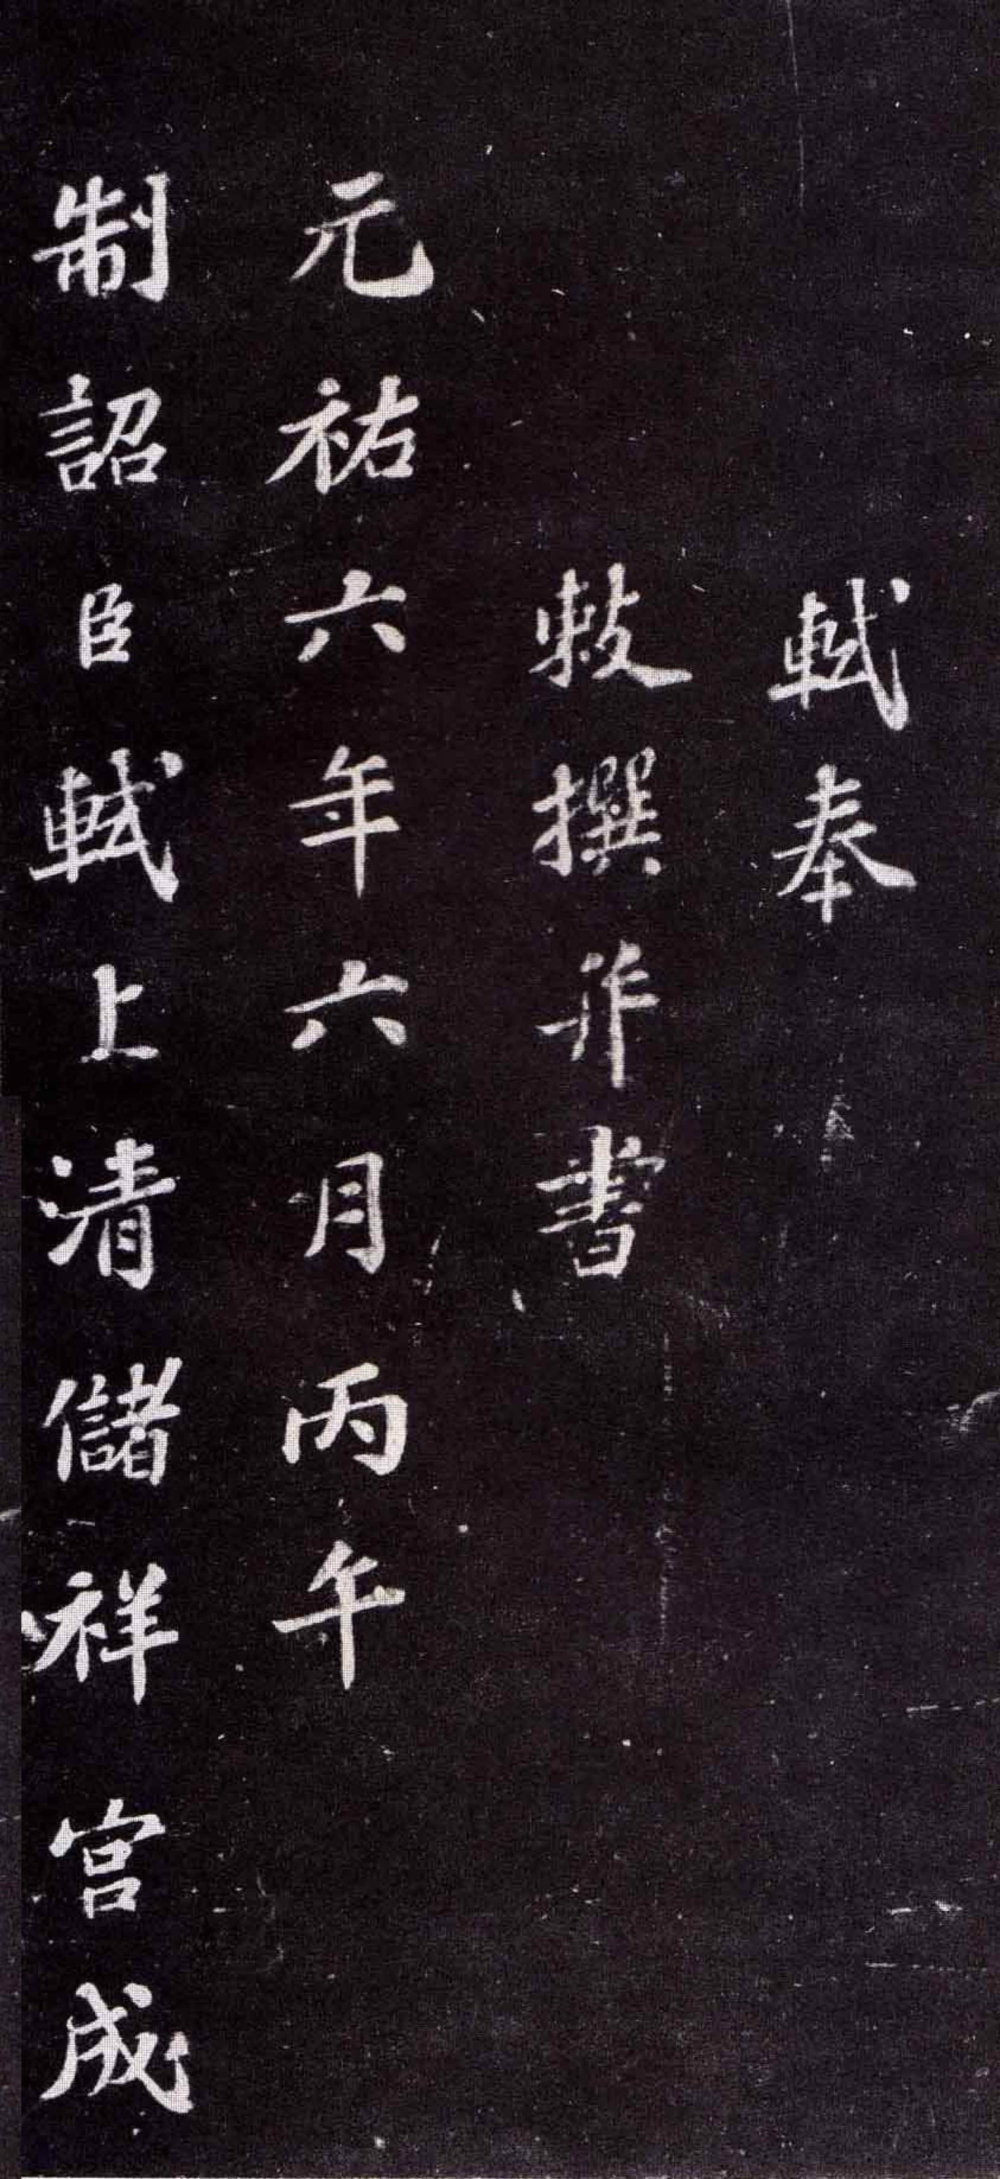 軾奉
敕撰并書
元祐六年六月丙午
制詔臣軾上清儲祥宮成